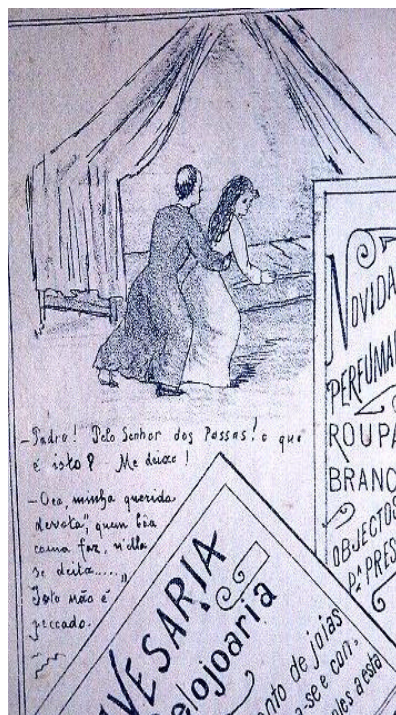 —Padre! Pelo Senhor dos Passos! o que
é isto? Me deixe!
—Ora, minha querida
devota", quem bôa
cama faz, n'ella
se deita.....,,
Isto não é
peccado.
NOVIDA
PERFUMA
ROUPA
BRANC
OBJECTO
Pª PRES
VESARIA
elojoaria
nto de joias
a-se e con,
ples a esta